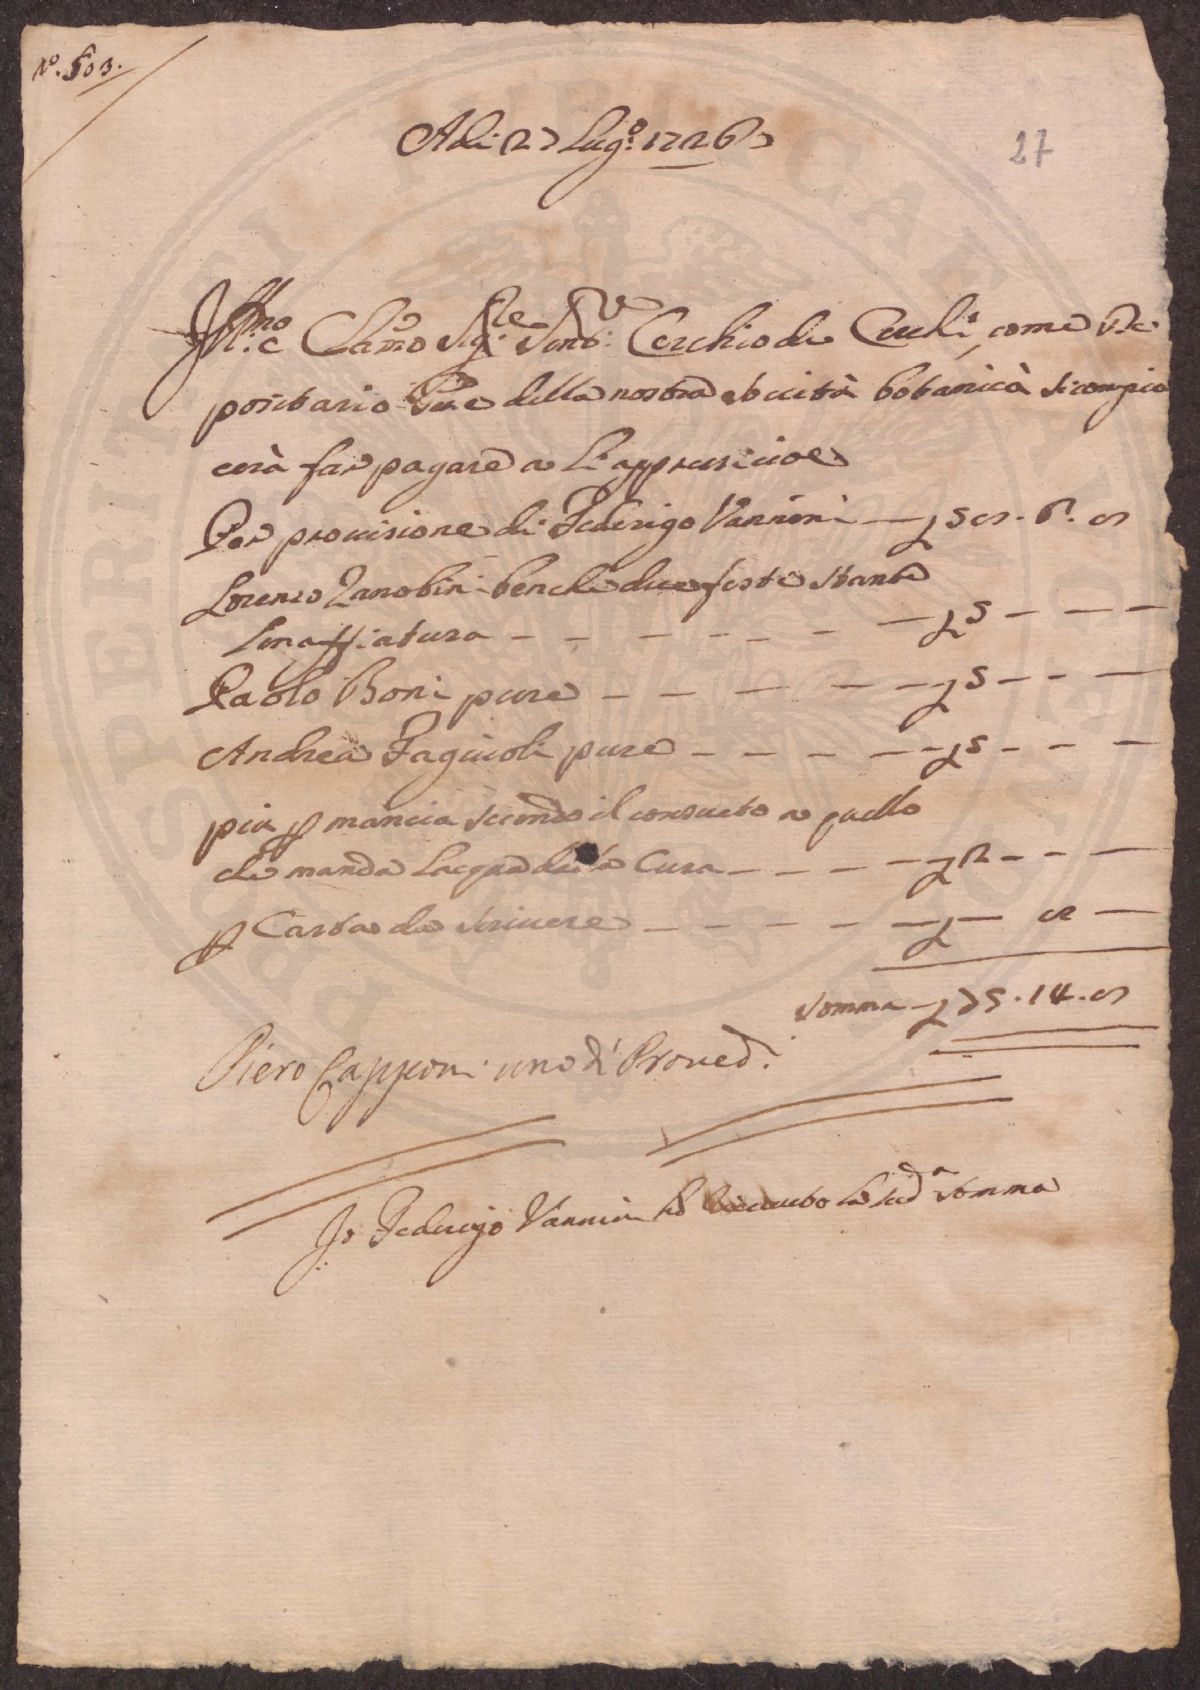 N.º 503.
27
Adi 27 Lug.º 1726
Ill.mo e Cla.mo Sig.re Sen.re Cerchio de Cerchi, come De
positario della nostra Società botanica si compia
cerà far pagare a li appresso cioe
Per provisione di Federigo Vannini — £ 58. 6. 8
Lorenzo Zanobini benche due feste stante
Linaffiatura — £ 5 — —
Paolo Boni pure — £ 5 — —
Andrea Fagiuoli pure — £ 5 — —
piu p mancia secondo il consueto a quello
che manda lacqua della Cura — £ 2 — —
p Carta da scrivere — £ — 8 —
Somma — £ 75. 14. 8
Piero Capponi uno de' Proved.i
Io Federigo Vannini ho riceuuto la sud.a somma
PERITI PUBLICAE
PROSPERITATI